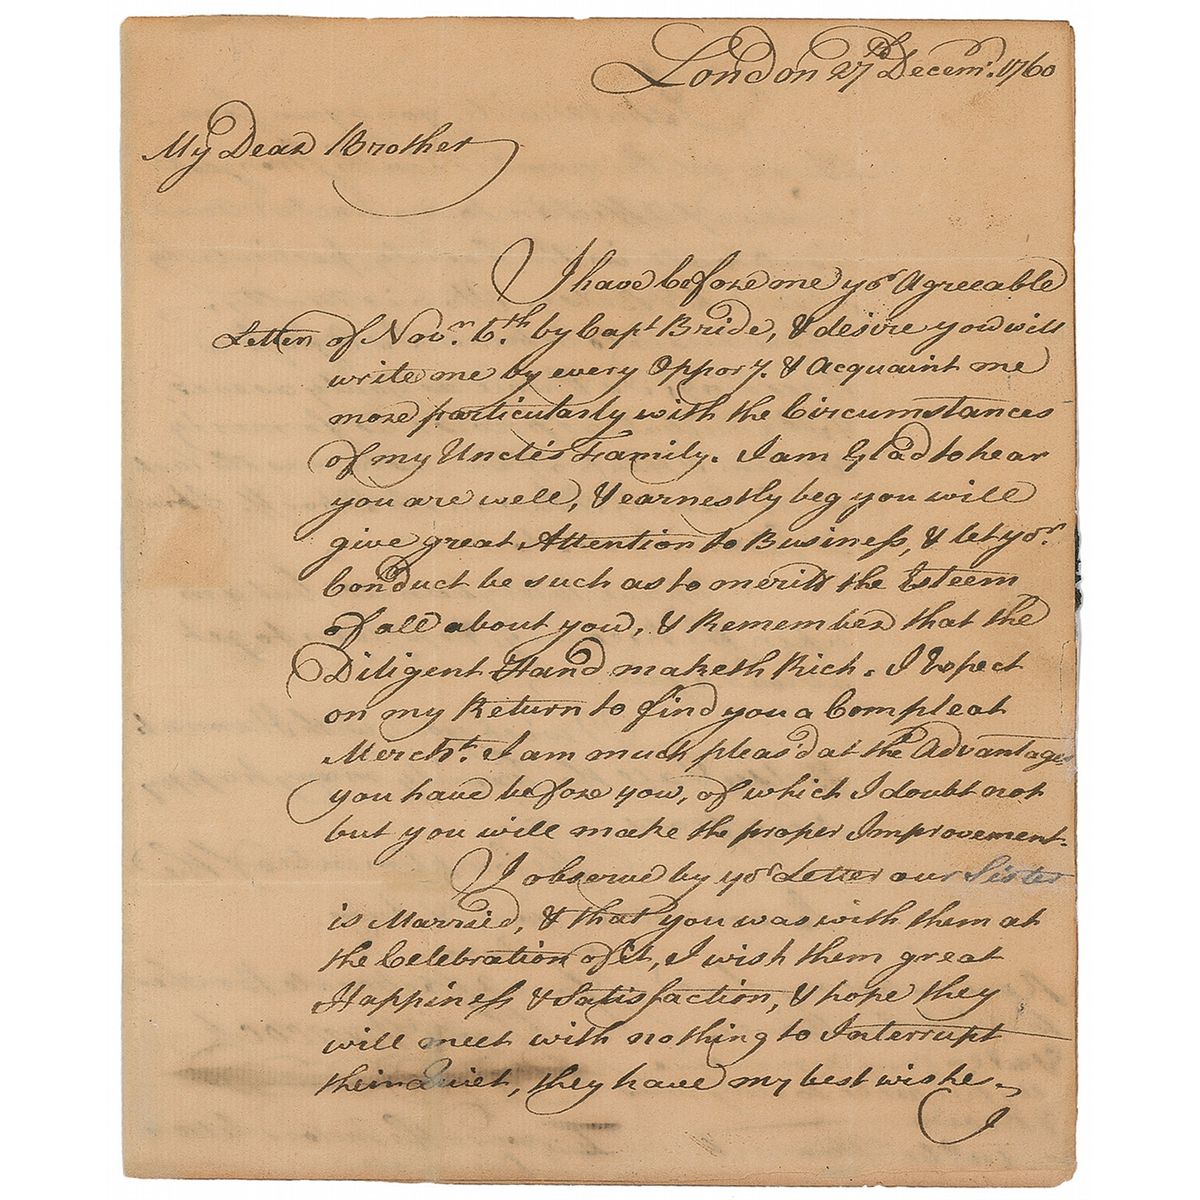 London 27th Decemr. 1760
My Dear Brother
I have before me yor Agreeable
Letter of Novr. 6th. by Capt Bride, & desire you will
write me by every Oppory. & Acquaint me
more particularly with the Circumstances
of my Uncle's Family. I am Glad to hear
you are well, & earnestly beg you will
give great Attention to Business, & let yor.
Conduct be such as to meritt the Esteem
of all about you, & Remember that the
Diligent Hand maketh Rich. I Expect
on my Return to find you a Compleat
Mercht. I am much pleas'd at the Advantages
you have before you, of which I doubt not
but you will make the proper Improvement.
I observe by yor Letter our Sister
is Married, & that you was with them at
the Celebration of it, I wish them great
Happiness & Satisfaction, & hope they
will meet with nothing to Interrupt
their Quiet, they have my best wishes.
I